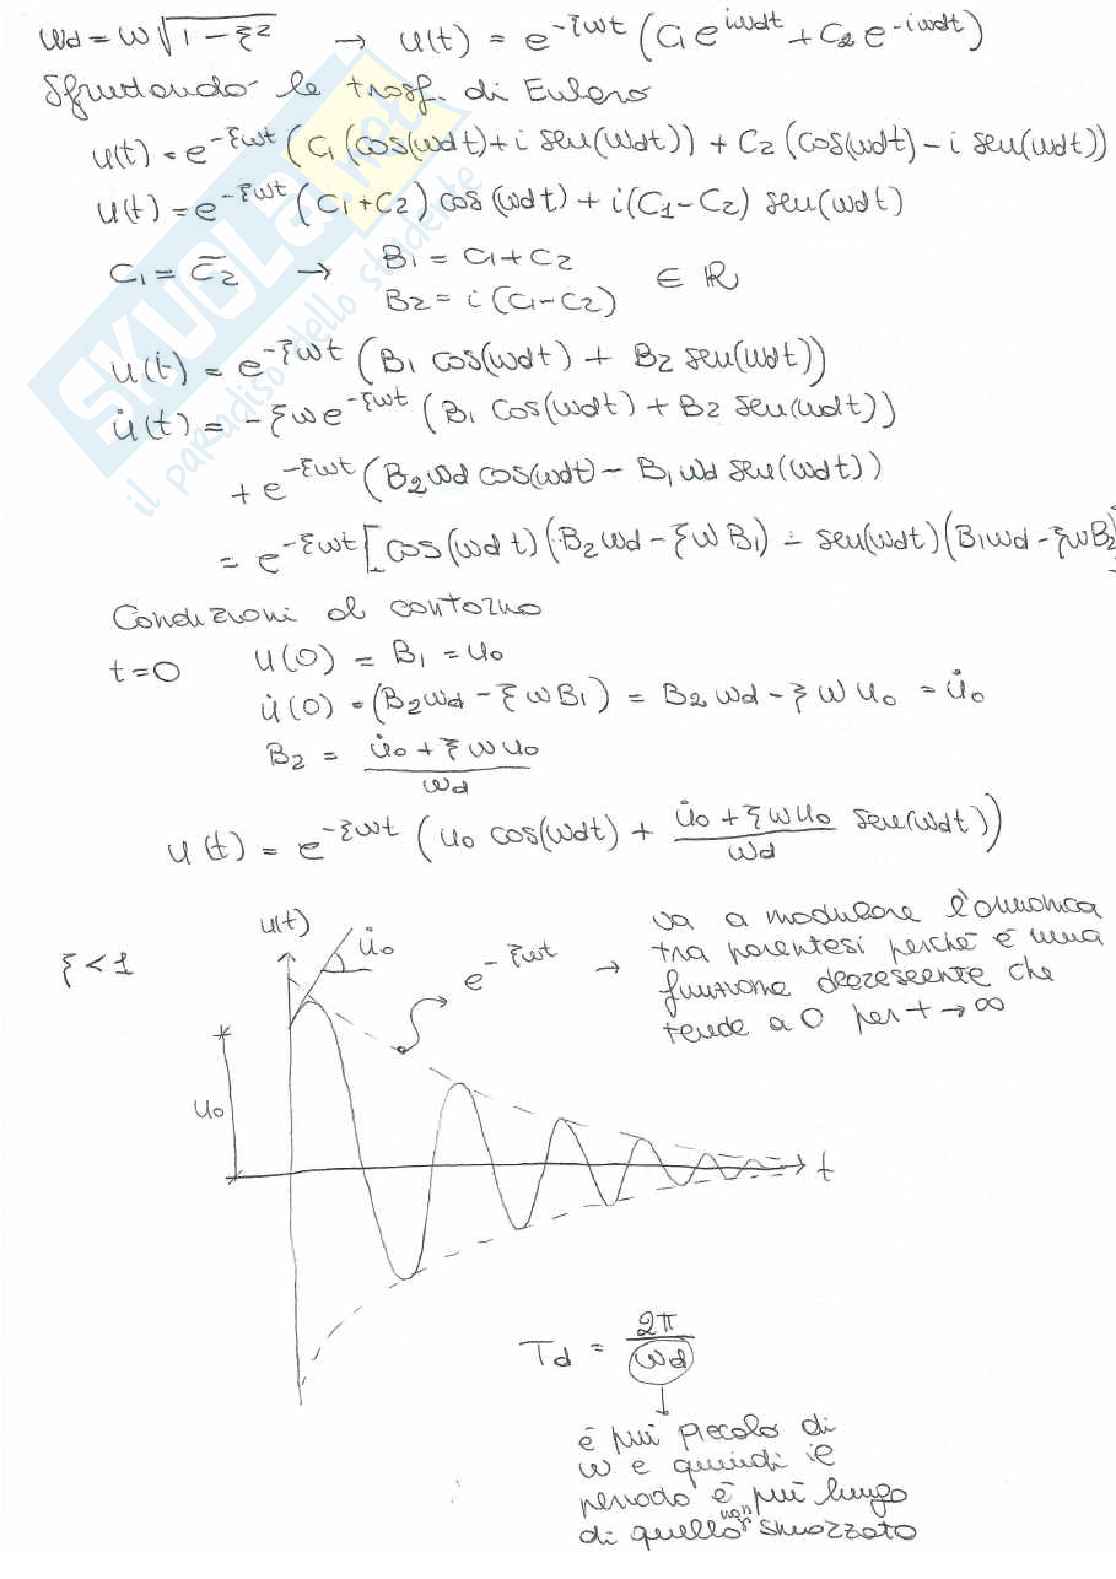 ωd = ω√(1-ξ²) → u(t) = e^(-ξωt) (C1 e^(iωdt) + C2 e^(-iωdt))
Sfruttando le trasf. di Eulero
u(t) = e^(-ξωt) (C1 (cos(ωdt) + i sen(ωdt)) + C2 (cos(ωdt) - i sen(ωdt))
u(t) = e^(-ξωt) (C1 + C2) cos(ωdt) + i(C1 - C2) sen(ωdt)
C1 = C̄2 → B1 = C1 + C2
B2 = i(C1 - C2) ∈ ℝ
u(t) = e^(-ξωt) (B1 cos(ωdt) + B2 sen(ωdt))
u̇(t) = -ξω e^(-ξωt) (B1 cos(ωdt) + B2 sen(ωdt))
+ e^(-ξωt) (B2 ωd cos(ωdt) - B1 ωd sen(ωdt))
= e^(-ξωt) [cos(ωdt) (B2 ωd - ξωB1) - sen(ωdt) (B1 ωd - ξωB2)]
Condizioni al contorno
t=0 u(0) = B1 = u0
u̇(0) = (B2 ωd - ξωB1) = B2 ωd - ξωu0 = u̇0
B2 = (u̇0 + ξωu0)/ωd
u(t) = e^(-ξωt) (u0 cos(ωdt) + (u̇0 + ξωu0)/ωd sen(ωdt))
u(t)
u̇0
ξ < 1
e^(-ξωt) → va a modulare l'armonica
tra parentesi perché è una
funzione decrescente che
tende a 0 per t → ∞
u0
t
Td = 2π/ωd
è più piccolo di
ω e quindi il
periodo è più lungo
di quello non smorzato
SKUOLA.net
il paradiso dello studente